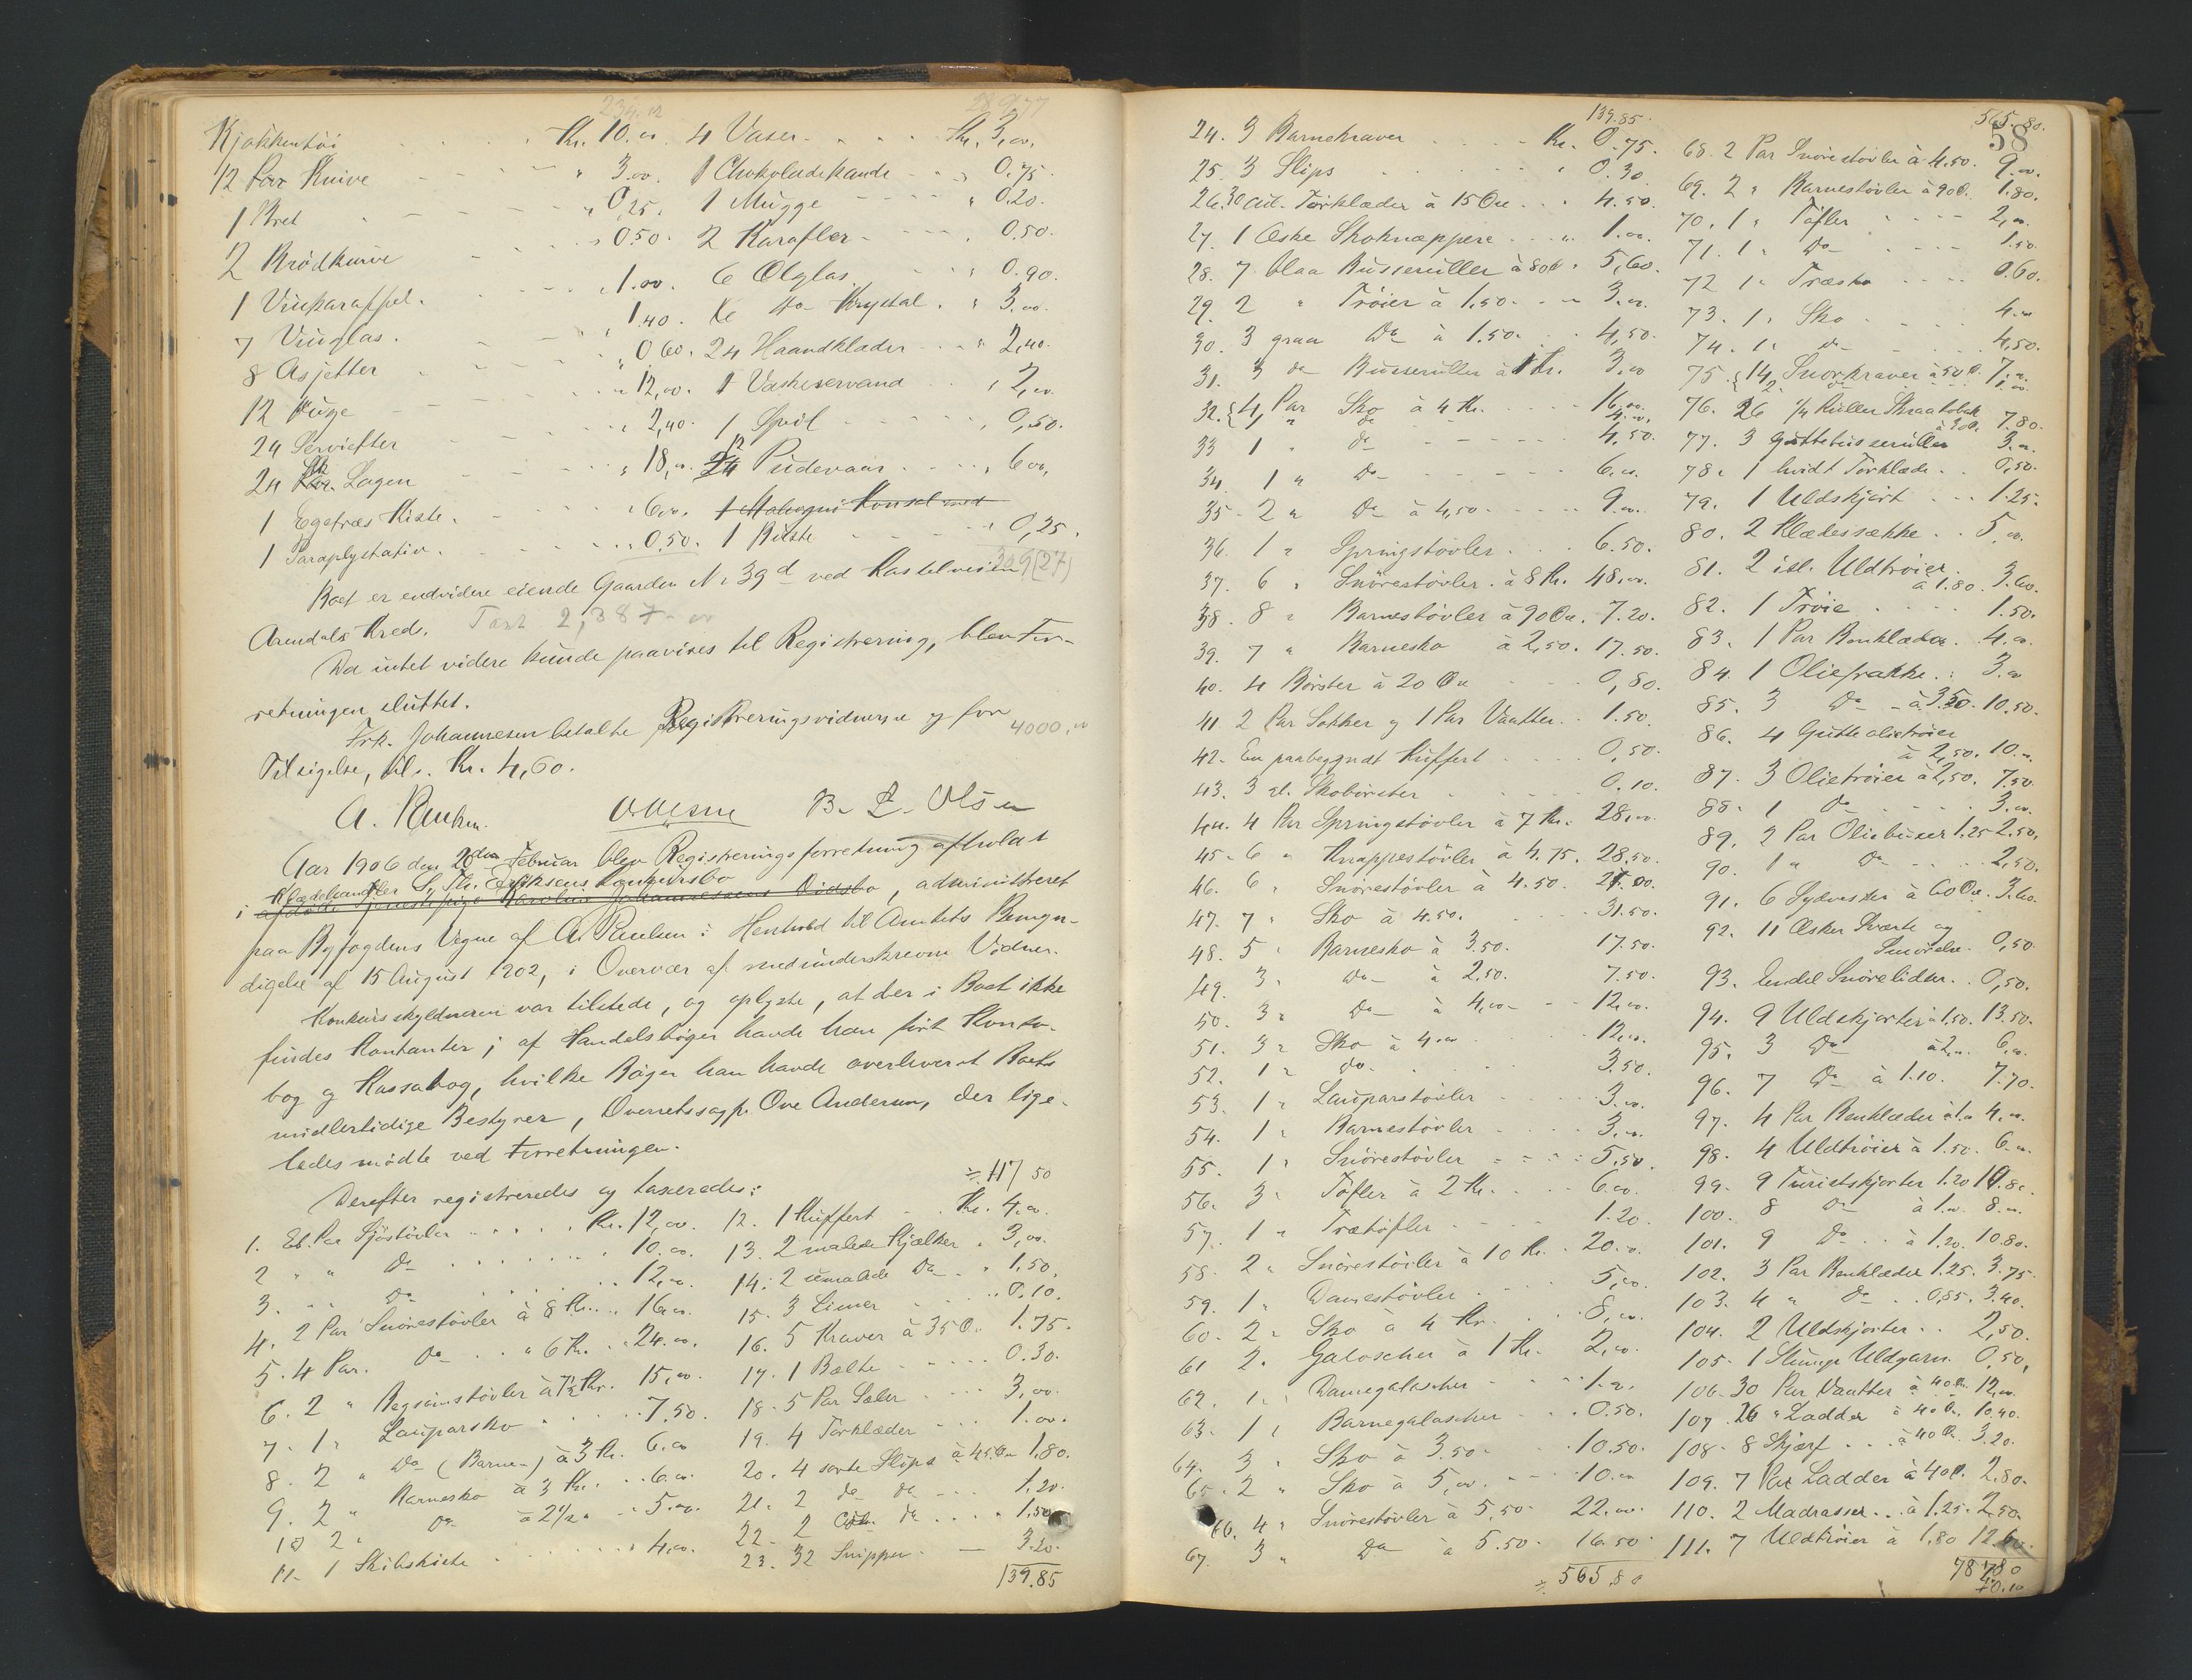 234.12 289.77
Kjøkkentøi Kr. 10.00
12 Par Knive " 3.00
1 Bret " 0,25
2 Brødkurve " 0.50
1 Vinkaraffel " 1.00
7 Vinglas " 1.40
8 Asjetter " 0.60
12 Duge " 12,00
24 Servietter " 2,40
24 Stk Lagen " 18,00
1 Egetræs Kiste " 6,00
1 Paraplystativ " 0,50
4 Vaser Kr. 3,00
1 Chokoladekande " 0.75
1 Mugge " 0.20
2 Karafler " 0.50
6 Ølglas " 0.90
6 do Krystal " 3.00
24 Haandklæder " 2,40
1 Vaskeservand " 2,00
1 Speil " 0,50
12 Pudevaar " 6,00
1 Mahogni Konsol med
1 Bøtte " 0,25
Boet er endvidere eiende Gaarden No 39d ved Kastelveien
Arendals Kreds. Taxt 2,387.00
Da intet videre kunde paavises til Registrering, blev For-
retningen sluttet.
Frk. Johannesen betalte Registreringsvidnerne og for 4000,00
Tilsigelse, tils. Kr. 4,60.
A. Paulsen B. Z. Olsen
Aar 1906 den 26den Februar blev Registreringsforretning afholdt
Klædehandler Eriksens Konkursbo
i afdøde Tjenestepige Karoline Johannessens Dødsbo, administreret
paa Byfogdens Vegne af A. Paulsen i Henhold til Amtets Bemyn-
digelse af 15 August 1902, i Overvær af medunderskrevne Vidner.
Konkursskyldneren var tilstede, og oplyste, at der i Boet ikke
findes Kontanter; af Handelsbøger havde han ført Konto-
bog og Kassabog, hvilke Bøger han havde overleveret Boets
midlertidige Bestyrer, Overretssagf. Ove Andersen, der lige-
ledes mødte ved Forretningen.
Derefter registreredes og taxeredes: 117 50
1. Et Par Sjøstøvler Kr. 12,00
2 " " Do 10.00
3. " " Do 12,00
4. 2 Par Snørestøvler à 8 Kr. 16,00
5. 4 Par. Do " 6 Kr. 24.00
6. 2 " Bergsømstøvler à 7½ Kr. 15,00
7. 1 " Lauparsko 7,50
8. 2 " Do (Barne-) à 3 Kr. 6.00
9. 2 " Barnesko à 3 Kr. 6.00
10 2 " Do à 2½ " 5.00
11. 1 Skibskiste 4,00
12. 1 Kuffert Kr. 4,00
13. 2 malede Kjælker " 3,00
14. 2 umalede Do " 1,50
15. 3 Limer 0.10
16. 5 Kraver à 35 Ø. 1.75
17. 1 Bælte 0.30
18. 5 Par Seler 3,00
19. 4 Tørklæder 1.00
20. 4 sorte Slips à 45 Øre 1,80
21. 2 do do 1.20
22. 2 do 1,50
23. 32 Snipper 3.20
139.85
139.85
24. 3 Barnekraver Kr. 0.75
25. 3 Slips 0.30
26. 30 Tørklæder à 15 Øre 4.50
27. 1 Æske Skoknæppere 1.00
28. 7 blaa Busseruller à 80 Ø. 5,60
29. 2 " Trøier à 1.50 3.00
30. 3 graa Do à 1.50 4,50
31. 3 do Busseruller à 1 Kr. 3,00
32. 4 Par Sko à 4 Kr. 16,00
1 " do 4.00
33 1 " do 4.50
34. 1 " Do 6.00
35. 2 " Do à 4,50 9.00
36. 1 " Springstøvler 6.50
37. 6 " Snørestøvler à 8 Kr. 48,00
38. 8 " Barnestøvler à 90 Øre. 7.20
39. 7 " Barnesko à 2,50. 17.50
40. 4 Børster à 20 Øre 0,80
41. 2 Par Sokker og 1 Par Vantter 1.50
42. En paabegyndt Kuffert 0,50
43. 3 gl. Skobørster 0.10
44. 4 Par Springstøvler à 7 Kr. 28,00
45. 6 " Knappestøvler à 4.75. 28,50
46. 6 " Snørestøvler à 4.50. 27.00
47. 7 " Sko à 4.50. 31.50
48. 5 " Barnesko à 3.50. 17.50
49. 3 " Do à 2.50. 7.50
50. 3 " Do à 4,00 12,00
51. 3 " Sko à 4.00 12,00
52. 1 " do. 3.50
53. 1 " Lauparstøvler 3.00
54. 1 " Barnestøvler 3,00
55. 1 " Snørestøvler 5,50
56. 3 " Tøfler à 2 Kr. 6.00
57. 1 " Trætøfler 1.20
58. 2 " Snørestøvler à 10 Kr. 20.00
59. 1 " Damestøvler 5,00
60. 2 " Sko à 4 Kr. 8,00
61 2 " Galoscher à 1 Kr. 2,00
62. 1 " Damegaloscher 1.00
63. 1 " Barnegaloscher 0.50
64. 3 " Sko à 3.50 10.50
65. 2 " Sko à 5,00 10.00
66. 4 " Snørestøvler à 5,50 22.00
67. 3 " Do à 5.50 16.50
565,80
565.80.
58
68. 2 Par Snørestøvler à 4.50. 9.00
69. 2 " Barnestøvler à 90 Ø. 1.80
70. 1 " Tøfler 2,00
71. 1 " Do 1.50
72 1 " Træsko 0.60
73. 1 " Sko 4.00
74. 1 " do 4,50
75. 14 Snorkraver à 50 Ø. 7.00
2 do 1.00
76. 26 1/4 Ruller Skraatobak à 30 Ø. 7.80
77. 3 Guttebusseruller 3.00
78. 1 hvidt Tørklæde 0,50
79. 1 Uldskjørt 1.25
80. 2 Klædessække 5,00
81. 2 isl. Uldtrøier à 1.80. 3.60
82. 1 Trøie 1.50
83. 1 Par Benklæder 4.00
84. 1 Oliefrakke 3.00
85. 3 Do à 3.50. 10.50
86. 4 Gutteolietrøier
à 2,50. 10.00
87. 3 Olietrøier à 2,50. 7,50
88. 1 Do 3.00
89. 2 Par Oliebuxer 1.25 2.50
90. 1 " Do 2,50
91. 6 Sydvester à 60 Øre. 3.60
92. 11 Æsker Sværte og
Smørelse. 0,50
93. Endel Snørelidser 0,50
94. 9 Uldskjorter à 1.50. 13.50
95. 3 Do à 2,00 6,00
96. 7 Do à 1.10. 7.70
97. 4 Par Benklæder à 1.00 4.00
98. 4 Uldtrøier à 1.50. 6.00
99. 9 Turistskjorter 1.20 10.80
100. 8 Do à 1.00 8.00
101. 9 Do à 1.20. 10.80
102. 3 Par Benklæder 1.25. 3.75
103. 4 " Do 0,85. 3.40
104. 2 Uldskjorter 2,50
105. 1 Slump Uldgarn 0,50
106. 30 Par Vantter à 40 Ø. 12.00
107. 26 " Ladder à 40 Ø. 10,40
108. 8 Skjærf à 40 Ø. 3.20
109. 7 Par Ladder à 40 Ø. 2.80
110. 2 Madrasser à 1.25. 2.50
111. 7 Uldtrøier à 1,80 12.60